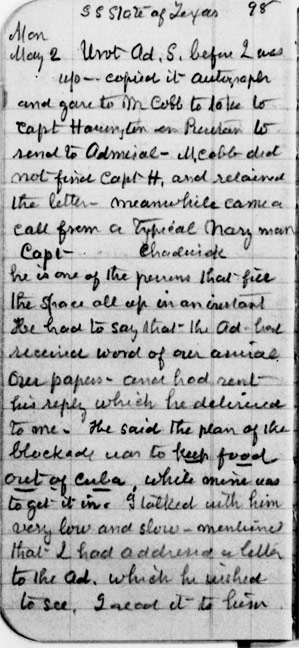 S S State of Texas 98
Mon
May 2 Wrot Ad. S. before I was
up - copied it autograph
and gave to McCobb to take to
Capt Harrington on Puritan to
send to Admiral - McCobb did
not find Capt H. and retained
the letter - meanwhile came a
call from a typical Navy man
Capt - Chadwick
he is one of the persons that fill
the space all up in an instant
He had to say that the Ad - had
received word of our arrival
Our papers - and had sent
his reply which he delivered
to me. He said the plan of the
blockade was to keep food
out of Cuba, while mine was
to get it in. I talked with him
very low and slow - mentioned
that I had addressed a letter
to the Ad. which he wished
to see. I read it to him